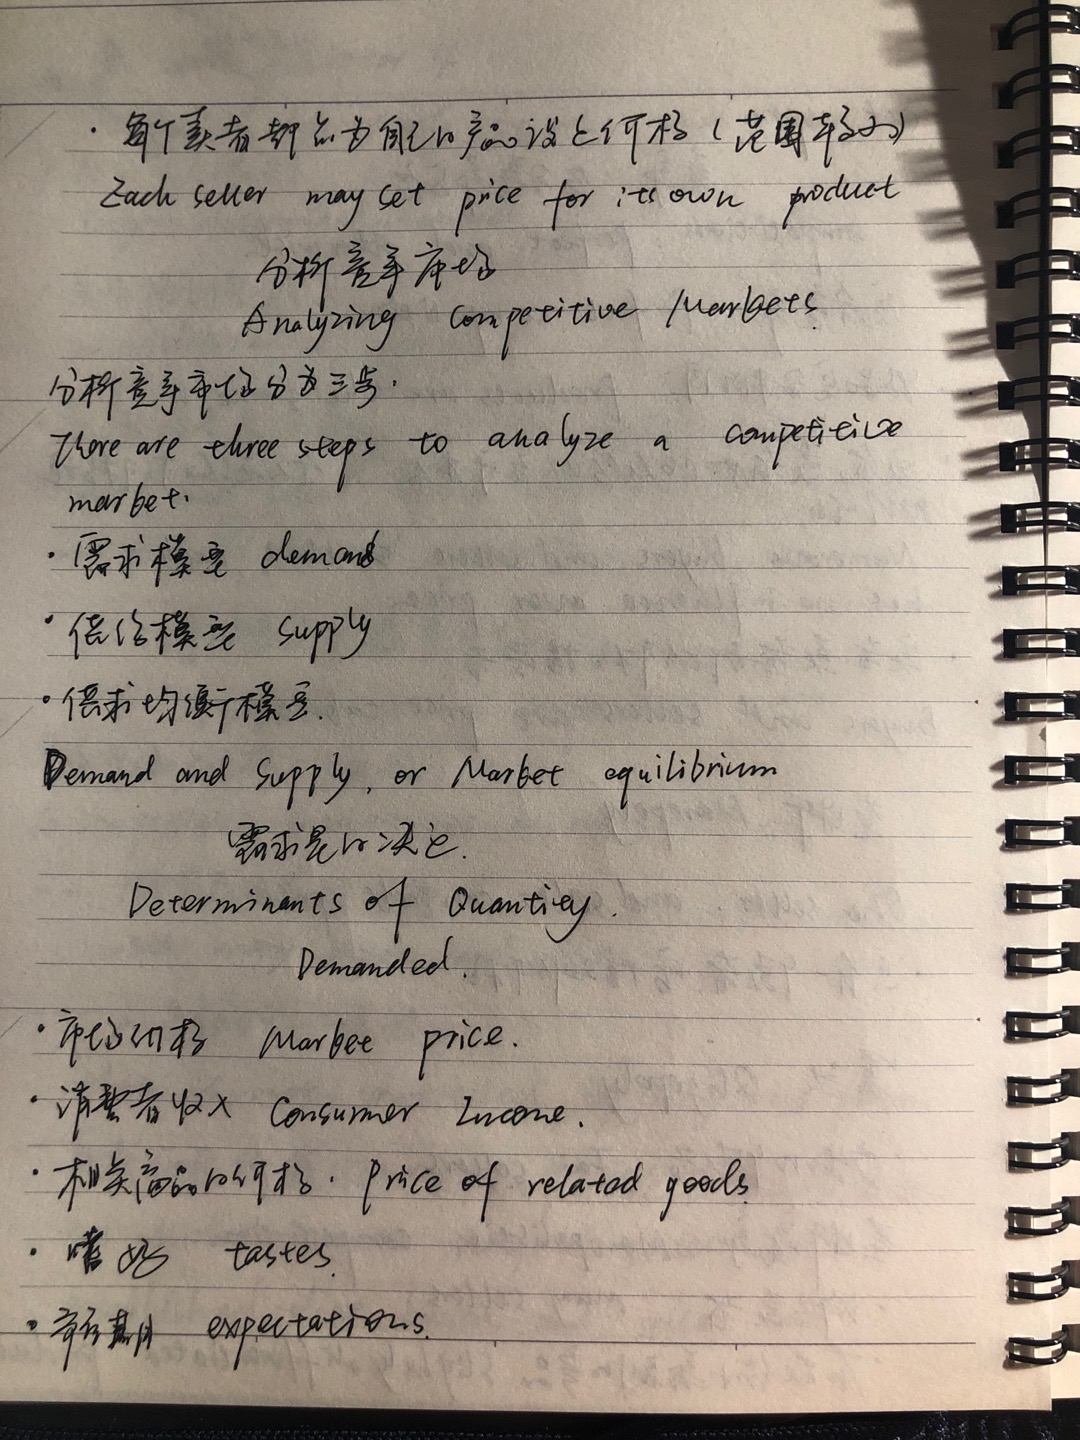 · 每个卖者都可为自己的产品设定价格（范围较小）
Each seller may set price for its own product
分析竞争市场
Analyzing Competitive Markets.
分析竞争市场分为三步.
There are three steps to analyze a competitive
market.
· 需求模型 demand
· 供给模型 supply
· 供求均衡模型.
Demand and Supply, or Market equilibrium
需求量的决定.
Determinants of Quantity.
Demanded.
· 市场价格 Market price.
· 消费者收入 Consumer Income.
· 相关商品的价格. Price of related goods.
· 嗜好 tastes.
· 预期 expectations.